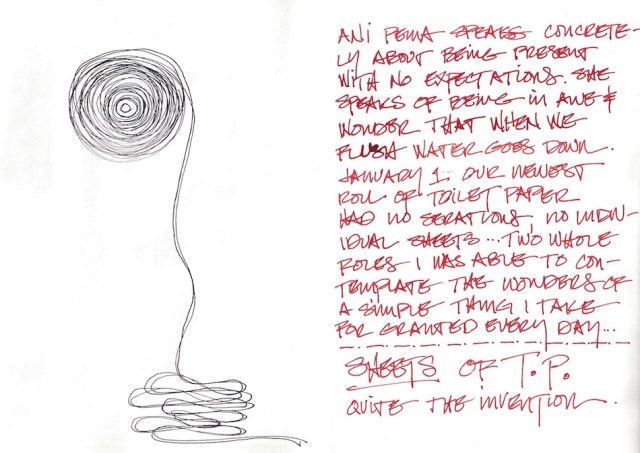 ANI PEMA SPEAKS CONCRETE-
LY ABOUT BEING PRESENT
WITH NO EXPECTATIONS. SHE
SPEAKS OF BEING IN AWE &
WONDER THAT WHEN WE
FLUSH WATER GOES DOWN.
JANUARY 1. OUR NEWEST
ROLL OF TOILET PAPER
HAD NO SERATIONS, NO INDIV-
IDUAL SHEETS... TWO WHOLE
ROLES I WAS ABLE TO CON-
TEMPLATE THE WONDERS OF
A SIMPLE THING I TAKE
FOR GRANTED EVERY DAY...
SHEETS OF T.P.
QUITE THE INVENTION.